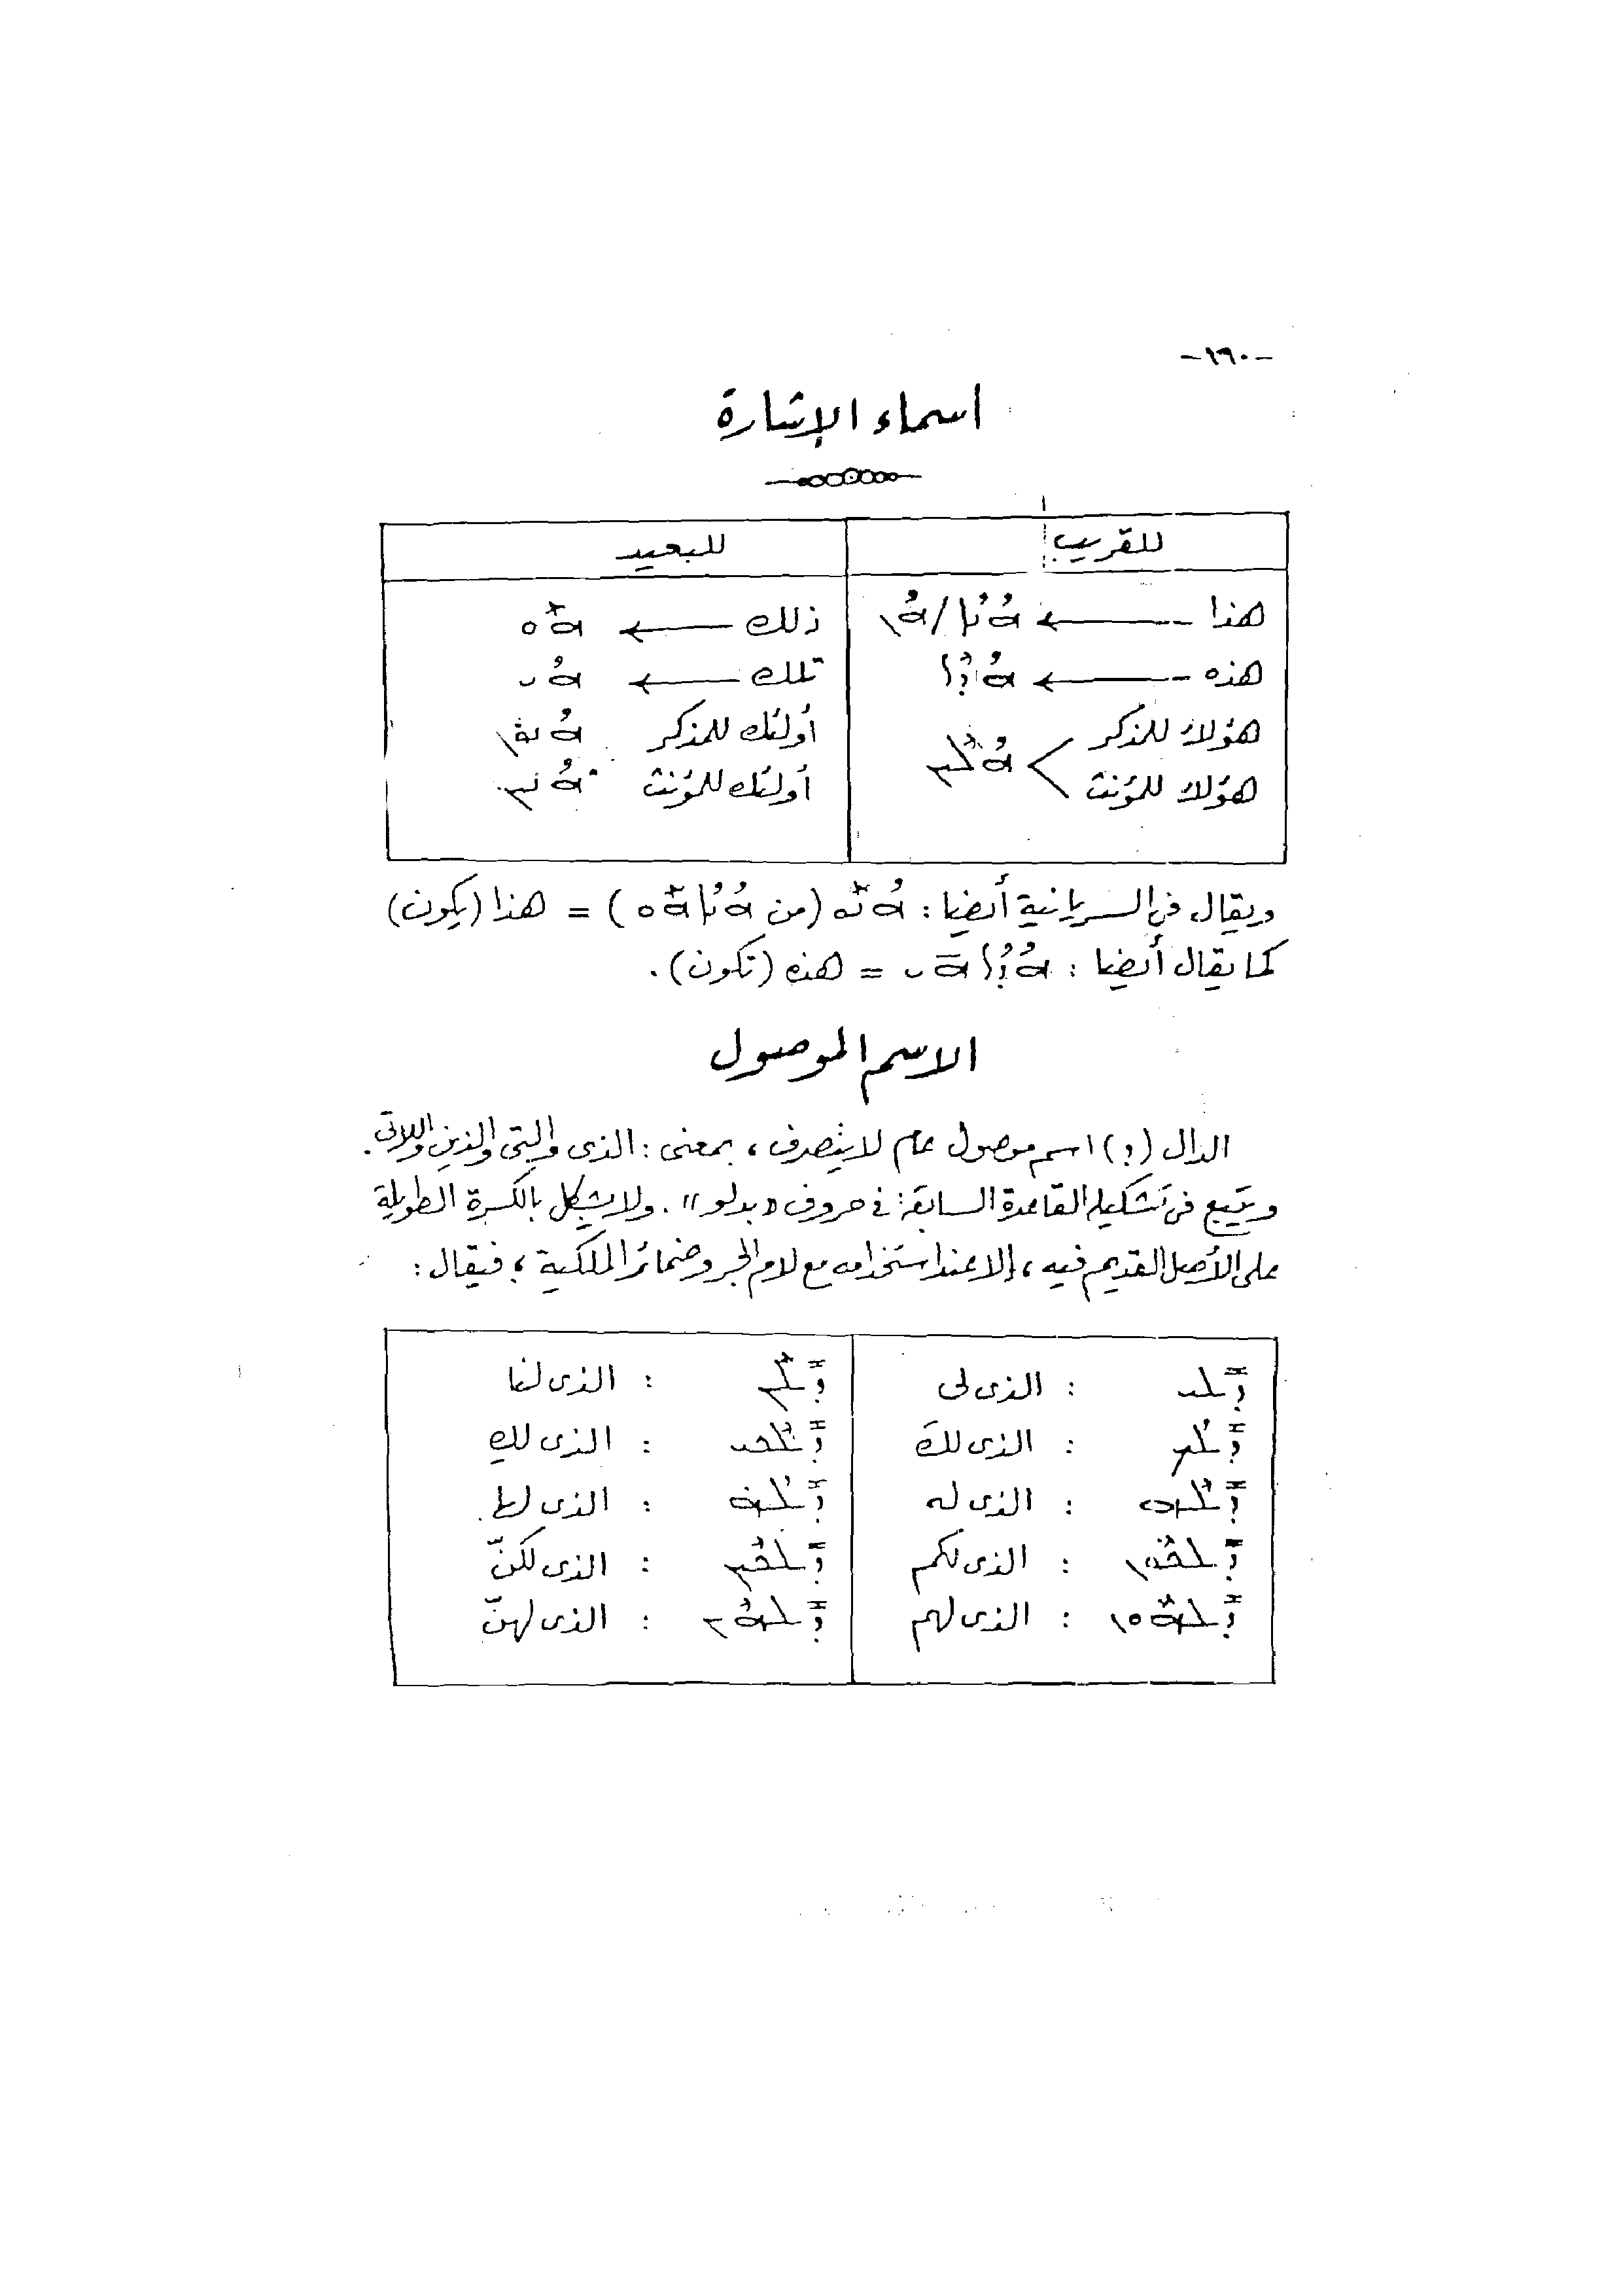 -١٦٠-
أسماء الإشارة
للقريب للبعيد
هذا ← ܗܳܢܳܐ / ܗܳܢ ذلك ← ܗܰܘ
هذه ← ܗܳܕܶܐ تلك ← ܗܳܝ
هؤلاء للمذكر ܗܳܠܶܝܢ أولئك للمذكر ܗܳܢܘܢ
هؤلاء للمؤنث أولئك للمؤنث ܗܳܢܝܢ
ويقال في السريانية أيضا: ܗܳܢܰܘ (من ܗܳܢܳܐ ܗܰܘ) = هذا (يكون)
كما يقال أيضا: ܗܳܕܶܐ ܗܝ = هذه (تكون).
الاسم الموصول
الدال (ܕ) اسم موصول عام لا يتصرف، بمعنى: الذى والتى والذين واللاتى.
ويتبع فى تشكيله القاعدة السابقة: فى حروف «بدلو». ولا يشكل بالكسرة الطويلة
على الأصل القديم فيه، إلا عند استخدامه مع لام الجر وضمائر الملكية؛ فيقال:
ܕܺܝܠܝ : الذى لى ܕܺܝܠܰܢ : الذى لنا
ܕܺܝܠܳܟ : الذى لكَ ܕܺܝܠܶܟܝ : الذى لكِ
ܕܺܝܠܶܗ : الذى له ܕܺܝܠܳܗ : الذى لها
ܕܺܝܠܟܘܢ : الذى لكم ܕܺܝܠܟܶܝܢ : الذى لكنّ
ܕܺܝܠܗܘܢ : الذى لهم ܕܺܝܠܗܶܝܢ : الذى لهنّ